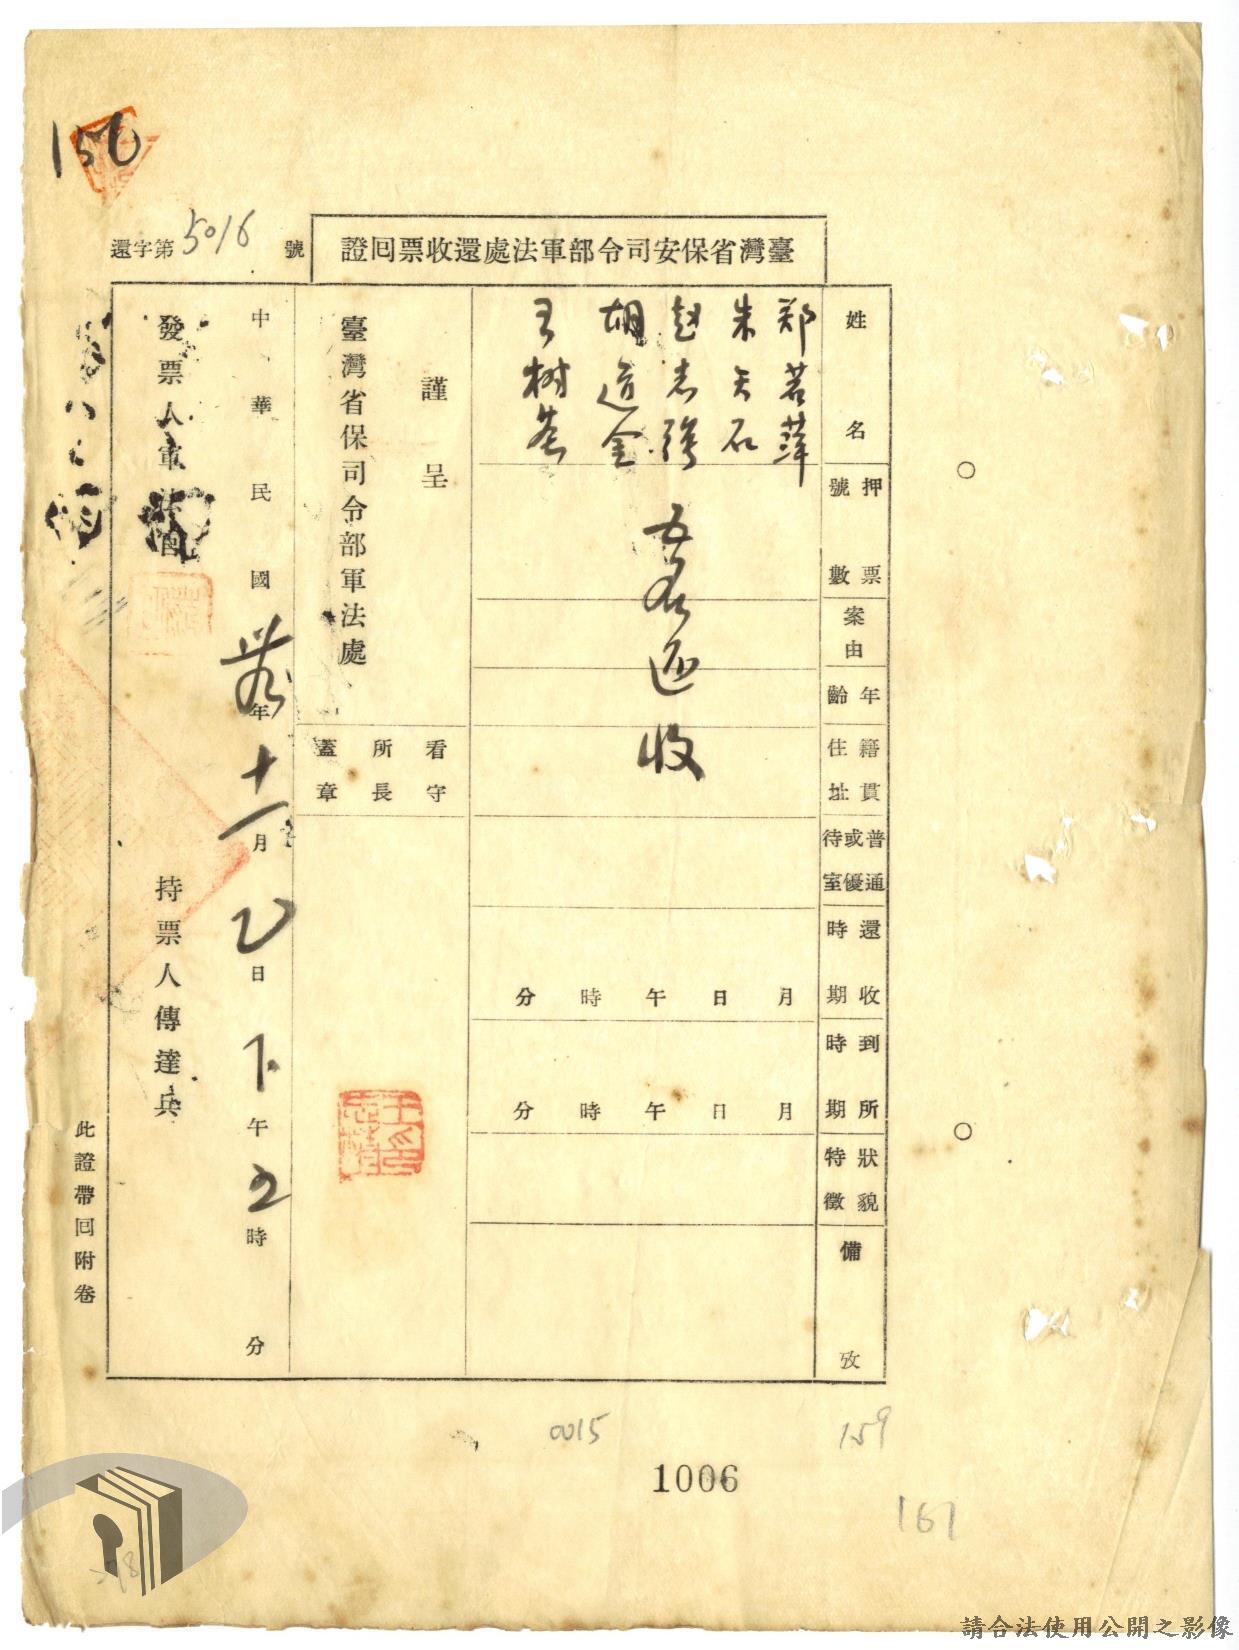 150
臺灣省保安司令部軍法處還收票回證
還字第5016號
姓名
押票號數
案由
年齡
籍貫住址
普通或優待室
還收時期
到所時期
狀貌特徵
備攷
鄭若萍
朱天石
趙志強
胡道金
王樹
五名还收
月日午時分
月日午時分
謹呈
臺灣省保司令部軍法處
看守所長蓋章
中華民國 年十一月 日下午 時 分
發票人軍法官
持票人傳達兵
此證帶回附卷
0015
159
1006
161
請合法使用公開之影像